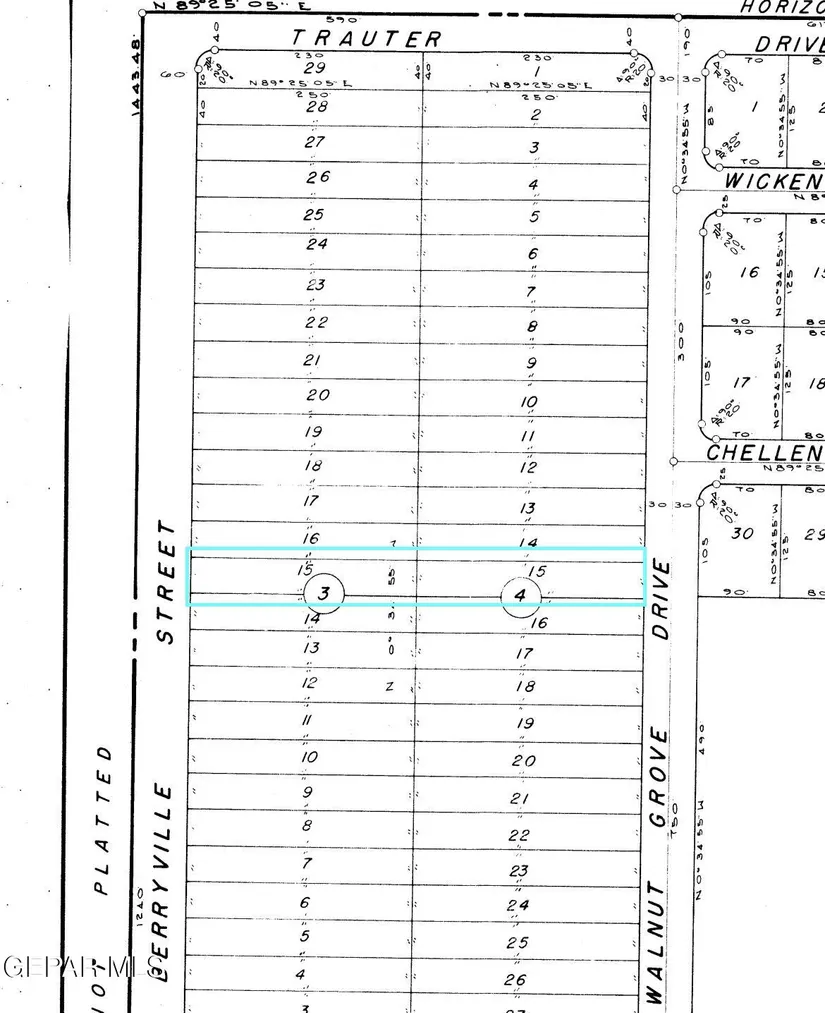 N 89°25'05" E
590
HORIZO
TRAUTER
DRIVE
1443.48'
40
40
190
230
230
70
60
20
29
40
40
1
30
30
N 89°25'05" E
N 89°25'05" E
250'
250'
28
2
85
1
N0°34'55"W
125
2
27
3
N0°34'55"W
70
26
4
WICKEN
25
5
25
70
80
24
6
16
105
N0°34'55"W
125
15
23
7
22
8
90
80
300
90
80
21
9
105
17
N0°34'55"W
125
18
20
10
19
11
70
80
CHELLEN
18
12
N89°25
25
70
80
17
13
30
30
16
14
30
29
105
N0°34'55"W
125
15
15
3
4
90
80
14
16
STREET
DRIVE
13
17
12
18
11
19
490
10
20
9
21
8
22
750
7
23
N 0°34'55"W
6
24
1240'
5
25
4
26
3
27
NOT PLATTED
BERRYVILLE
WALNUT GROVE
GEPAR MLS